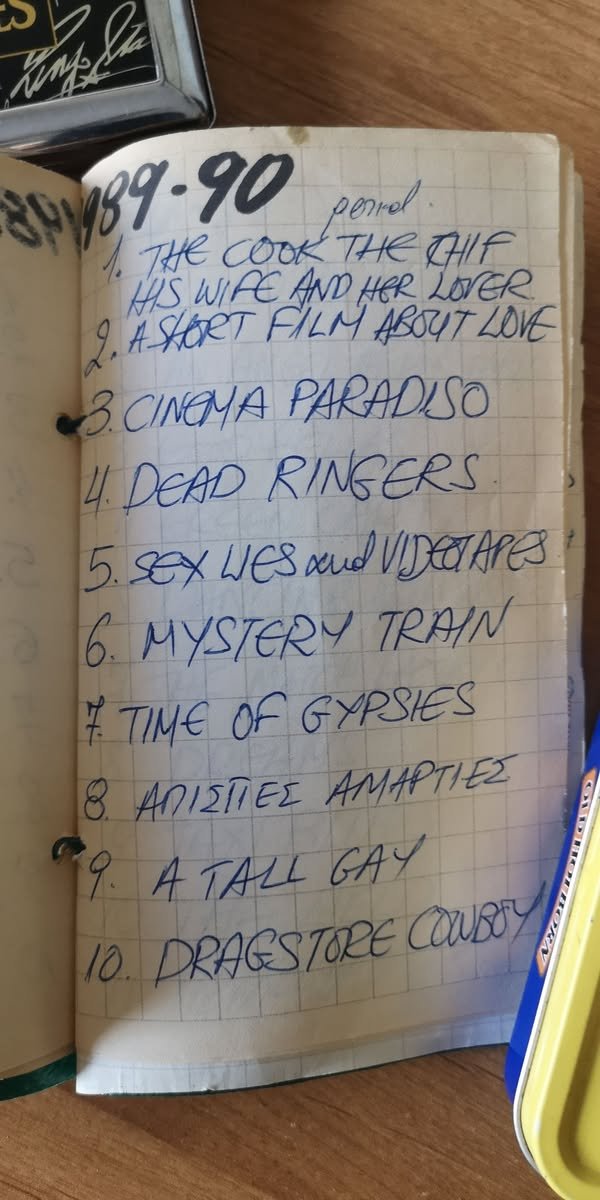 ES
Ringo Starr
1989-90
period.
1. THE COOK THE THIF
HIS WIFE AND HER LOVER
2. A SHORT FILM ABOUT LOVE
3. CINEMA PARADISO
4. DEAD RINGERS.
5. SEX LIES and VIDEOTAPES
6. MYSTERY TRAIN
7. TIME OF GYPSIES
8. ΑΠΙΣΤΙΕΣ ΑΜΑΡΤΙΕΣ
9. A TALL GAY
10. DRAGSTORE COWBOY
OLD HOLBORN